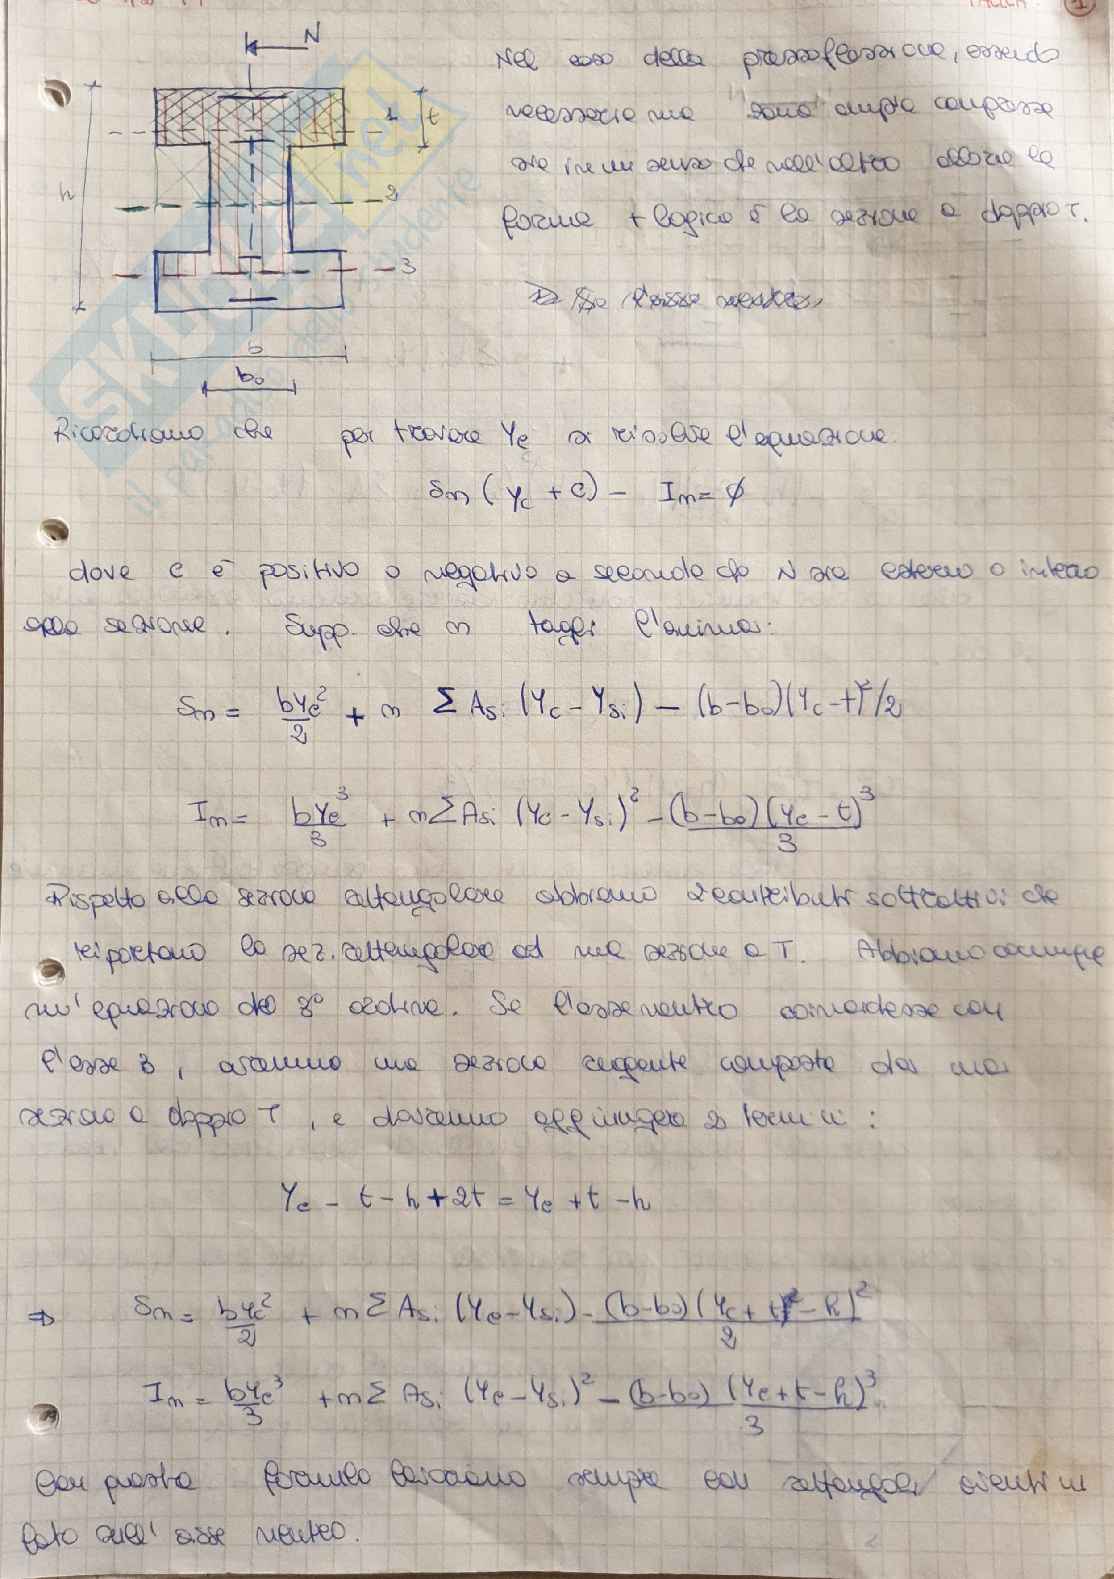 N
Nel caso della pressoflessione, essendo
necessaria una zona ampia compressa
sia in un senso che nell'altro allora la
forma + logica è la sezione a doppio T.
1
t
h
2
3
b
b₀
Ricordiamo che per trovare Yc si risolve l'equazione:
Sn (yc + c) - In = ∅
dove c è positivo o negativo a seconda che N sia esterno o interno
alla sezione. Supp. che n tagli l'anima:
Sn = bYc²/2 + n Σ Asi (Yc - Ysi) - (b-b₀)(Yc-t)²/2
In = bYc³/3 + nΣAsi (Yc - Ysi)² - (b-b₀)(Yc - t)³/3
Rispetto alla sezione rettangolare abbiamo 2 contributi sottrattivi che
riportano la sez. rettangolare ad una sezione a T. Abbiamo comunque
un'equazione del 3° ordine. Se l'asse neutro coincidesse con
l'asse 3, avremmo una sezione reagente composta da una
sezione a doppio T, e dovremmo aggiungere 2 termini:
Yc - t - h + 2t = Yc + t - h
⇒ Sn = bYc²/2 + nΣ Asi (Yc-Ysi) - (b-b₀)(Yc + t - h)²/2
In = bYc³/3 + nΣ Asi (Yc-Ysi)² - (b-b₀)(Yc + t - h)³/3
Con questa formula lavoriamo sempre con rettangoli aventi un
lato sull'asse neutro.
SKUOLA.net